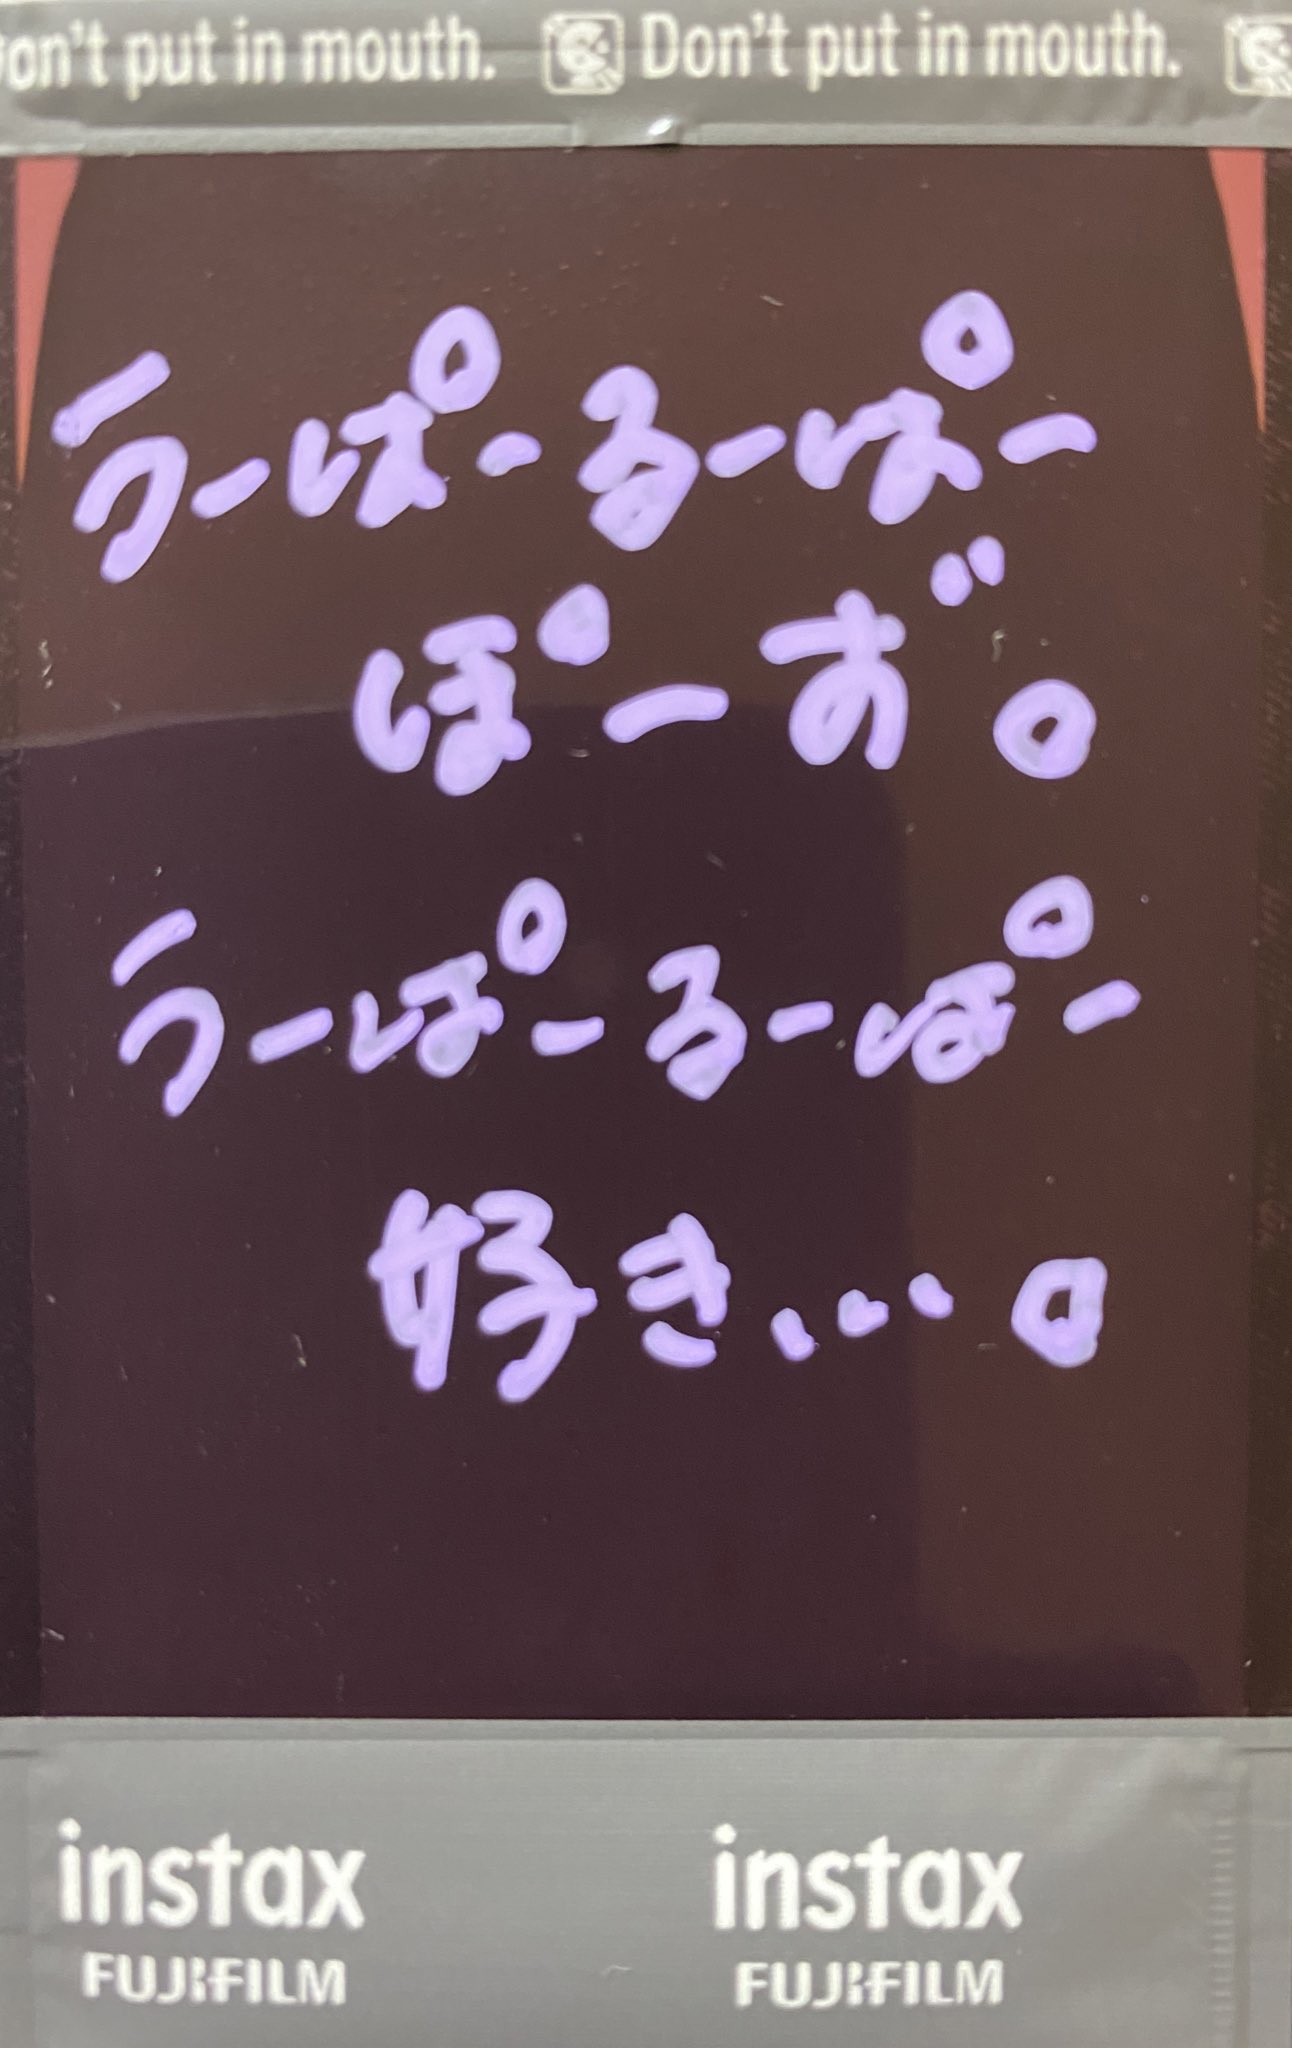 on't put in mouth. Don't put in mouth.
うーぱーるーぱー
ぽーず。
うーぱーるーぱー
好き...。
instax instax
FUJIFILM FUJIFILM